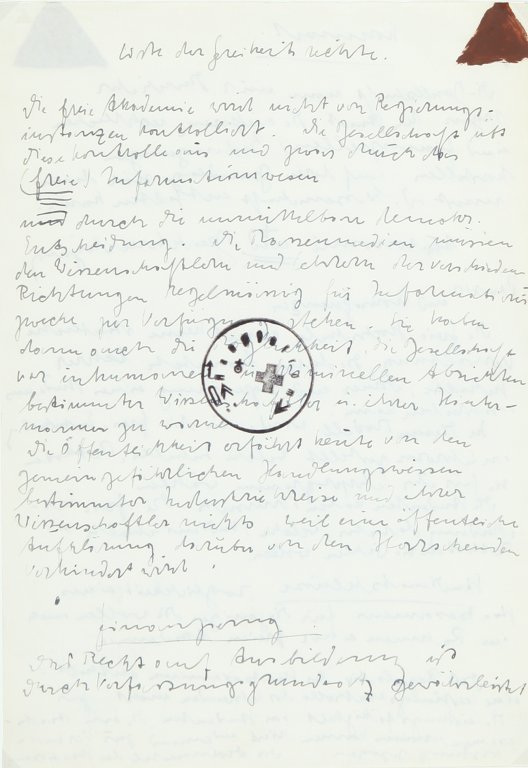 Liste der Freiheitsrechte.
Die freie Akademie wird nicht von Regierungs-
instanzen kontrolliert. Die Gesellschaft übt
diese Kontrolle aus und zwar durch das
(freie) Informationswesen
und durch die unmittelbare demokr.
Entscheidung. Die Massenmedien müssen
den Wissenschaftlern und Lehrern der verschieden
Richtungen regelmässig für Informations
zwecke zur Verfügung stehen. Sie haben
dann auch die Möglichkeit die Gesellschaft
vor inhumanen kriminellen Absichten
bestimmter Wissenschaftler u. ihrer Hinter-
männer zu warnen.
Die Öffentlichkeit erfährt heute von den
gemeingefährlichen Handlungsweisen
bestimmter Industriekreise und ihrer
Wissenschaftler nichts weil eine öffentliche
Aufklärung darüber von den Herrschenden
verhindert wird.
Finanzierung
Das Recht auf Ausbildung ist
durch Verfassungsgrundsatz gewährleistet